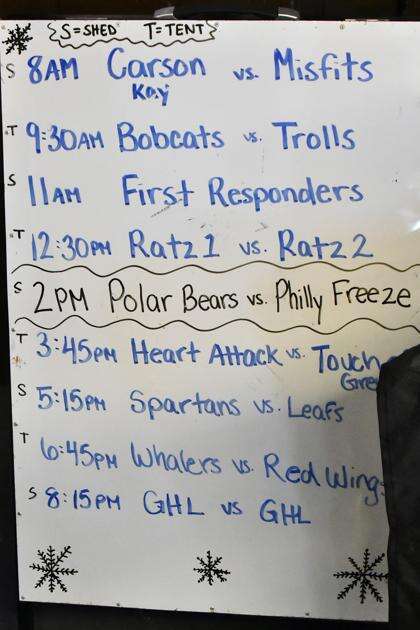 S=SHED T=TENT
S 8AM Carson vs. Misfits
Kay
T 9:30AM Bobcats vs. Trolls
S 11AM First Responders
T 12:30PM Ratz 1 vs. Ratz 2
S 2PM Polar Bears vs. Philly Freeze
T 3:45PM Heart Attack vs. Touch
S 5:15PM Spartans vs. Leafs
T 6:45PM Whalers vs. Red Wing
S 8:15PM GHL vs GHL